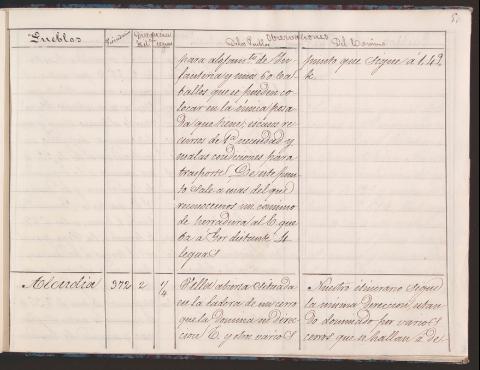 Observaciones
Pueblos
De los Pueblos
Del Camino
para alojam.to de In-
fanteria y unos 60 Ca-
ballos que se pueden co-
locar en la única posa-
da que tiene; escasos re-
cursos de 1.a necesidad y
malas condiciones para
trasporte. De este pun-
to sale á mas del que
reconocemos un camino
de herradura al E. que
va a Gor distante 4
leguas
punto que sigue á 1,42
k.
Alcudia 372 2 1/4
Villa abierta situada
en la ladera de un cerro
que la domina en direc-
cion E. y otros varios
Nuestro itinerario sigue
la misma direccion, estan-
do dominado por varios
cerros que se hallan á de-